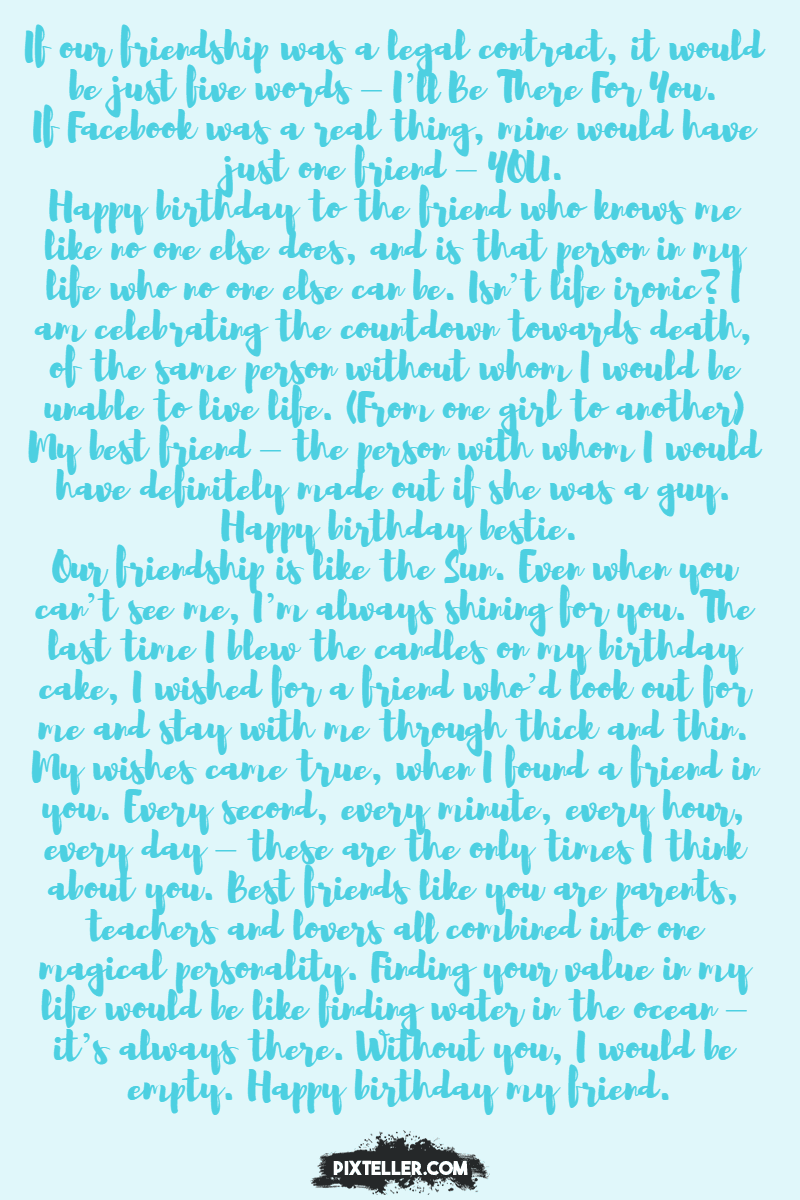 If our friendship was a legal contract, it would
be just five words – I'll Be There For You.
If Facebook was a real thing, mine would have
just one friend – YOU.
Happy birthday to the friend who knows me
like no one else does, and is that person in my
life who no one else can be. Isn't life ironic? I
am celebrating the countdown towards death,
of the same person without whom I would be
unable to live life. (From one girl to another)
My best friend – the person with whom I would
have definitely made out if she was a guy.
Happy birthday bestie.
Our friendship is like the Sun. Even when you
can't see me, I'm always shining for you. The
last time I blew the candles on my birthday
cake, I wished for a friend who'd look out for
me and stay with me through thick and thin.
My wishes came true, when I found a friend in
you. Every second, every minute, every hour,
every day – these are the only times I think
about you. Best friends like you are parents,
teachers and lovers all combined into one
magical personality. Finding your value in my
life would be like finding water in the ocean –
it's always there. Without you, I would be
empty. Happy birthday my friend.
PIXTELLER.COM